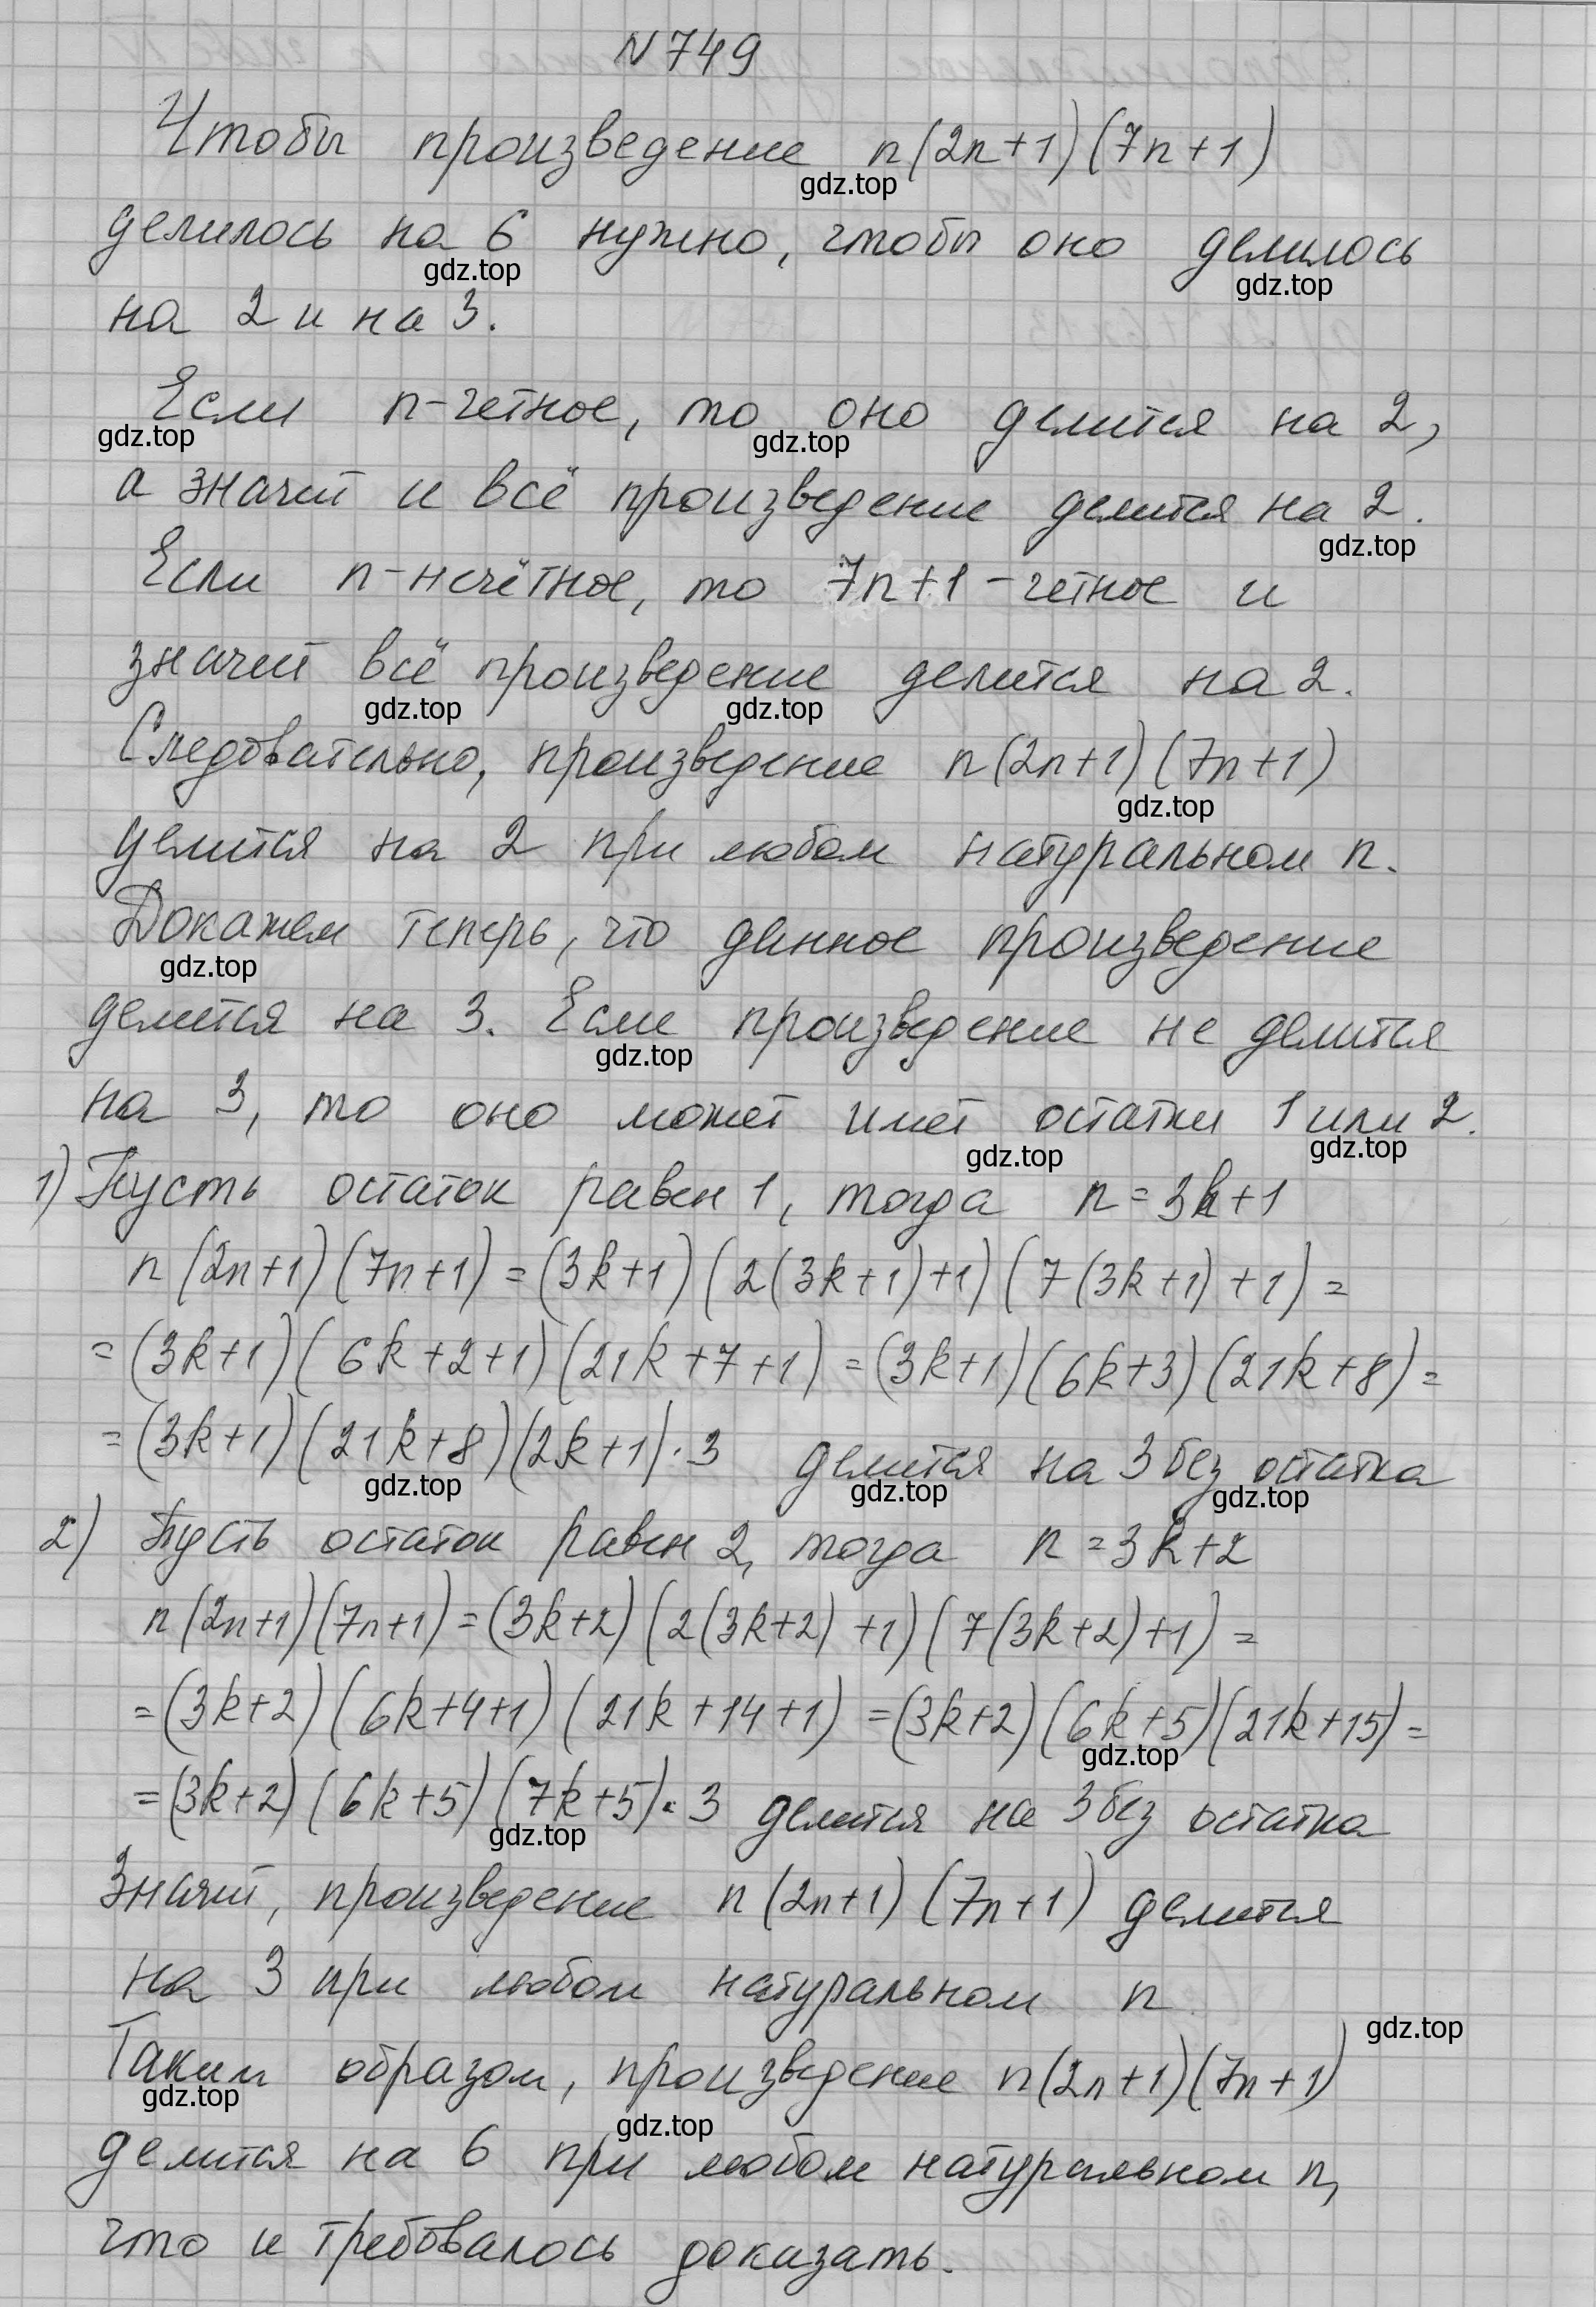 N749
Чтобы произведение n(2n+1)(7n+1)
gdz.top
делилось на 6 нужно, чтобы оно делилось
gdz.top gdz.top
на 2 и на 3.
Если n-четное, то оно делится на 2,
gdz.top gdz.top
а значит и всё произведение делится на 2.
gdz.top
Если n-нечётное, то 7n+1-четное и
значит всё произведение делится на 2.
gdz.top gdz.top
Следовательно, произведение n(2n+1)(7n+1)
gdz.top
делится на 2 при любом натуральном n.
Докажем теперь, что данное произведение
gdz.top
делится на 3. Если произведение не делится
gdz.top
на 3, то оно может имет остатки 1 или 2.
gdz.top gdz.top
1) Пусть остаток равен 1, тогда n=3k+1
n(2n+1)(7n+1)=(3k+1)(2(3k+1)+1)(7(3k+1)+1)=
=(3k+1)(6k+2+1)(21k+7+1)=(3k+1)(6k+3)(21k+8)=
=(3k+1)(21k+8)(2k+1)·3 делится на 3 без остатка
gdz.top gdz.top gdz.top
2) Пусть остаток равен 2, тогда n=3k+2
n(2n+1)(7n+1)=(3k+2)(2(3k+2)+1)(7(3k+2)+1)=
=(3k+2)(6k+4+1)(21k+14+1)=(3k+2)(6k+5)(21k+15)=
gdz.top
=(3k+2)(6k+5)(7k+5)·3 делится на 3 без остатка
gdz.top
Значит, произведение n(2n+1)(7n+1) делится
на 3 при любом натуральном n
gdz.top
Таким образом, произведение n(2n+1)(7n+1)
gdz.top gdz.top
делится на 6 при любом натуральном n,
что и требовалось доказать.